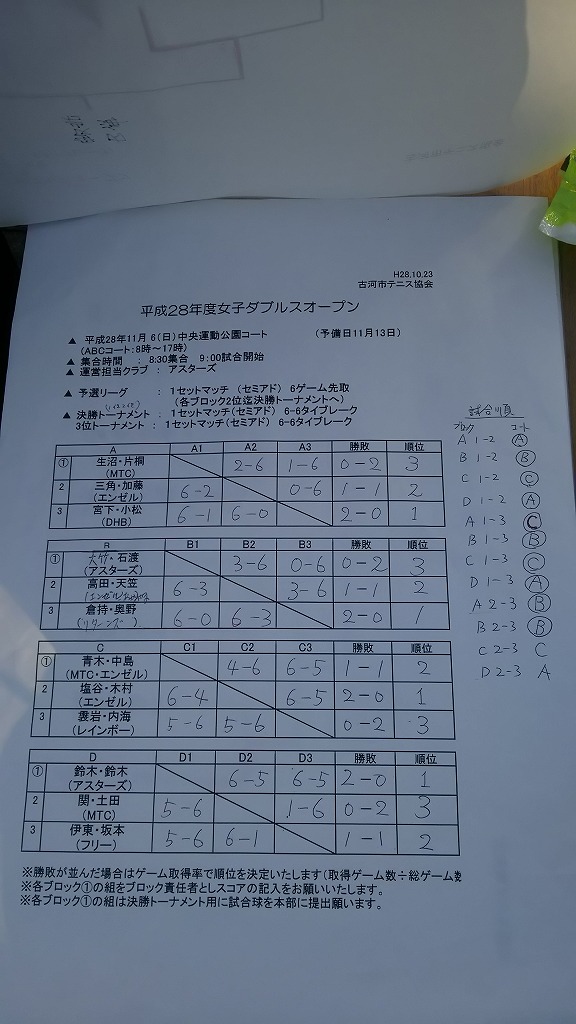 H28.10.23
古河市テニス協会
平成28年度女子ダブルスオープン
▲ 平成28年11月 6(日)中央運動公園コート (予備日11月13日)
(ABCコート:8時~17時)
▲ 集合時間 : 8:30集合 9:00試合開始
▲ 運営担当クラブ : アスターズ
▲ 予選リーグ : 1セットマッチ (セミアド) 6ゲーム先取
(各ブロック2位迄決勝トーナメントへ)
▲ 決勝トーナメント : 1セットマッチ(セミアド) 6-6タイブレーク
3位トーナメント : 1セットマッチ(セミアド) 6-6タイブレーク
試合順
ブロック コート
A 1-2 A
B 1-2 B
C 1-2 C
D 1-2 A
A 1-3 C
B 1-3 B
C 1-3 C
D 1-3 A
A 2-3 B
B 2-3 B
C 2-3 C
D 2-3 A
A A1 A2 A3 勝敗 順位
① 生沼・片桐 2-6 1-6 0-2 3
(MTC)
2 三角・加藤 6-2 0-6 1-1 2
(エンゼル)
3 宮下・小松 6-1 6-0 2-0 1
(DHB)
B B1 B2 B3 勝敗 順位
① 大竹・石渡 3-6 0-6 0-2 3
(アスターズ)
2 高田・天笠 6-3 3-6 1-1 2
3 倉持・奥野 6-0 6-3 2-0 1
(リターンズ)
C C1 C2 C3 勝敗 順位
① 青木・中島 4-6 6-5 1-1 2
(MTC・エンゼル)
2 塩谷・木村 6-4 6-5 2-0 1
(エンゼル)
3 裊岩・内海 5-6 5-6 0-2 3
(レインボー)
D D1 D2 D3 勝敗 順位
① 鈴木・鈴木 6-5 6-5 2-0 1
(アスターズ)
2 関・土田 5-6 1-6 0-2 3
(MTC)
3 伊東・坂本 5-6 6-1 1-1 2
(フリー)
※勝敗が並んだ場合はゲーム取得率で順位を決定いたします(取得ゲーム数÷総ゲーム数
※各ブロック①の組をブロック責任者としスコアの記入をお願いいたします。
※各ブロック①の組は決勝トーナメント用に試合球を本部に提出願います。